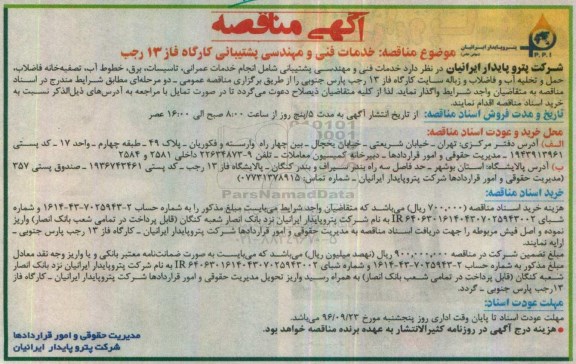 آگهی مناقصه
پتروپایدار ایرانیان
P.P.I
موضوع مناقصه: خدمات فنی و مهندسی پشتیبانی کارگاه فاز ۱۳ رجب
شرکت پترو پایدار ایرانیان در نظر دارد خدمات فنی و مهندسی پشتیبانی شامل انجام خدمات عمرانی، تاسیسات، برق، خطوط آب، تصفیه‌خانه فاضلاب،
حمل و تخلیه آب و فاضلاب و زباله سایت کارگاه فاز ۱۳ رجب پارس جنوبی را از طریق برگزاری مناقصه عمومی ـ دو مرحله‌ای مطابق شرایط مندرج در اسناد
مناقصه به متقاضیان واجد شرایط واگذار نماید. لذا از کلیه متقاضیان ذیصلاح دعوت می‌گردد تا در صورت تمایل با مراجعه به آدرس‌های ذیل‌الذکر نسبت به
خرید اسناد مناقصه اقدام نمایند.
تاریخ و مدت فروش اسناد مناقصه: از تاریخ انتشار آگهی به مدت ۵/پنج روز از ساعت ۸:۰۰ صبح الی ۱۶:۰۰ عصر
محل خرید و عودت اسناد مناقصه:
الف) آدرس دفتر مرکزی: تهران ـ خیابان شریعتی ـ خیابان یخچال ـ بین چهار راه وارسته و فکوریان ـ پلاک ۴۹ ـ طبقه چهارم ـ واحد ۱۷ ـ کد پستی
۱۹۳۹۹۱۳۹۶۱ ـ مدیریت حقوقی و امور قراردادها ـ دبیرخانه کمیسیون معاملات ـ تلفن ۹-۲۲۶۳۴۸۷۳ داخلی ۲۵۸۱ و ۲۵۸۴
ب) آدرس پالایشگاه: استان بوشهر ـ حد فاصل سه راه بندر سیراف و بندر کنگان ـ پالایشگاه فاز ۱۳ رجب ـ کد پستی ۱۹۳۶۷۴۳۴۶۱ ـ صندوق پستی ۳۵۷
(مدیریت حقوقی و امور قراردادها شرکت پتروپایدار ایرانیان ـ شماره تماس: ۰۷۷۳۱۳۷۸۹۱۵)
خرید اسناد مناقصه:
هزینه خرید اسناد مناقصه (۷۰۰,۰۰۰ ریال) می‌باشد که متقاضیان واجد شرایط می‌بایست مبلغ مذکور را به شماره حساب ۲-۷۰۲۵۹۴۳-۴۳-۱۶۱۴ و شماره
شبای IR ۶۴۰۶۳۰۱۶۱۴۰۴۳۰۷۰۲۵۹۴۳۰۰۲ به نام شرکت پتروپایدار ایرانیان نزد بانک انصار شعبه کنگان (قابل پرداخت در تمامی شعب بانک انصار) واریز
نموده و اصل فیش مربوطه را جهت دریافت اسناد مناقصه به مدیریت حقوقی و امور قراردادها شرکت پتروپایدار ایرانیان ـ کارگاه فاز ۱۳ رجب پارس جنوبی ـ
ارایه نمایند.
مبلغ تضمین شرکت در مناقصه ۹۰۰,۰۰۰,۰۰۰ ریال (نهصد میلیون ریال) می‌باشد که می‌بایست به صورت ضمانت‌نامه معتبر بانکی و یا واریز وجه نقد معادل
مبلغ مذکور به شماره حساب ۲-۷۰۲۵۹۴۳-۴۳-۱۶۱۴ و شماره شبای IR ۶۴۰۶۳۰۱۶۱۴۰۴۳۰۷۰۲۵۹۴۳۰۰۲ به نام شرکت پتروپایدار ایرانیان نزد بانک انصار
شعبه کنگان (قابل پرداخت در تمامی شعب بانک انصار) به همراه رسید واریز تحویل مدیریت حقوقی و امور قراردادها شرکت پتروپایدار ایرانیان ـ کارگاه فاز
۱۳ رجب پارس جنوبی ـ گردد.
مهلت عودت اسناد:
مهلت عودت اسناد تا پایان وقت اداری روز پنجشنبه مورخ ۹۶/۰۹/۲۳ می‌باشد.
* هزینه درج آگهی در روزنامه کثیرالانتشار به عهده برنده مناقصه خواهد بود.
مدیریت حقوقی و امور قراردادها
شرکت پترو پایدار ایرانیان
ParsNamadData